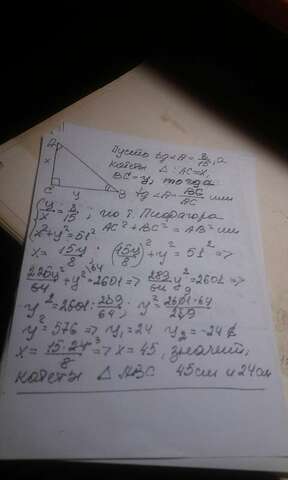 A
x
C y B
Пусть tg∠A = 8/15, а
катеты Δ: AC=x,
BC=y, тогда
tg∠A = BC/AC или
{y/x = 8/15, по т. Пифагора
{x²+y²=51² AC²+BC²=AB² или
x = 15y/8; (15y/8)² + y² = 51² =>
225y²/64 + y² \64 = 2601 => 289/64 y² = 2601 =>
y² = 2601 : 289/64; y² = 2601·64/289
y² = 576 => y₁ = 24 y₂ = -24 ∉
x = 15·24³/8 => x = 45, значит,
катеты Δ ABC 45см и 24см